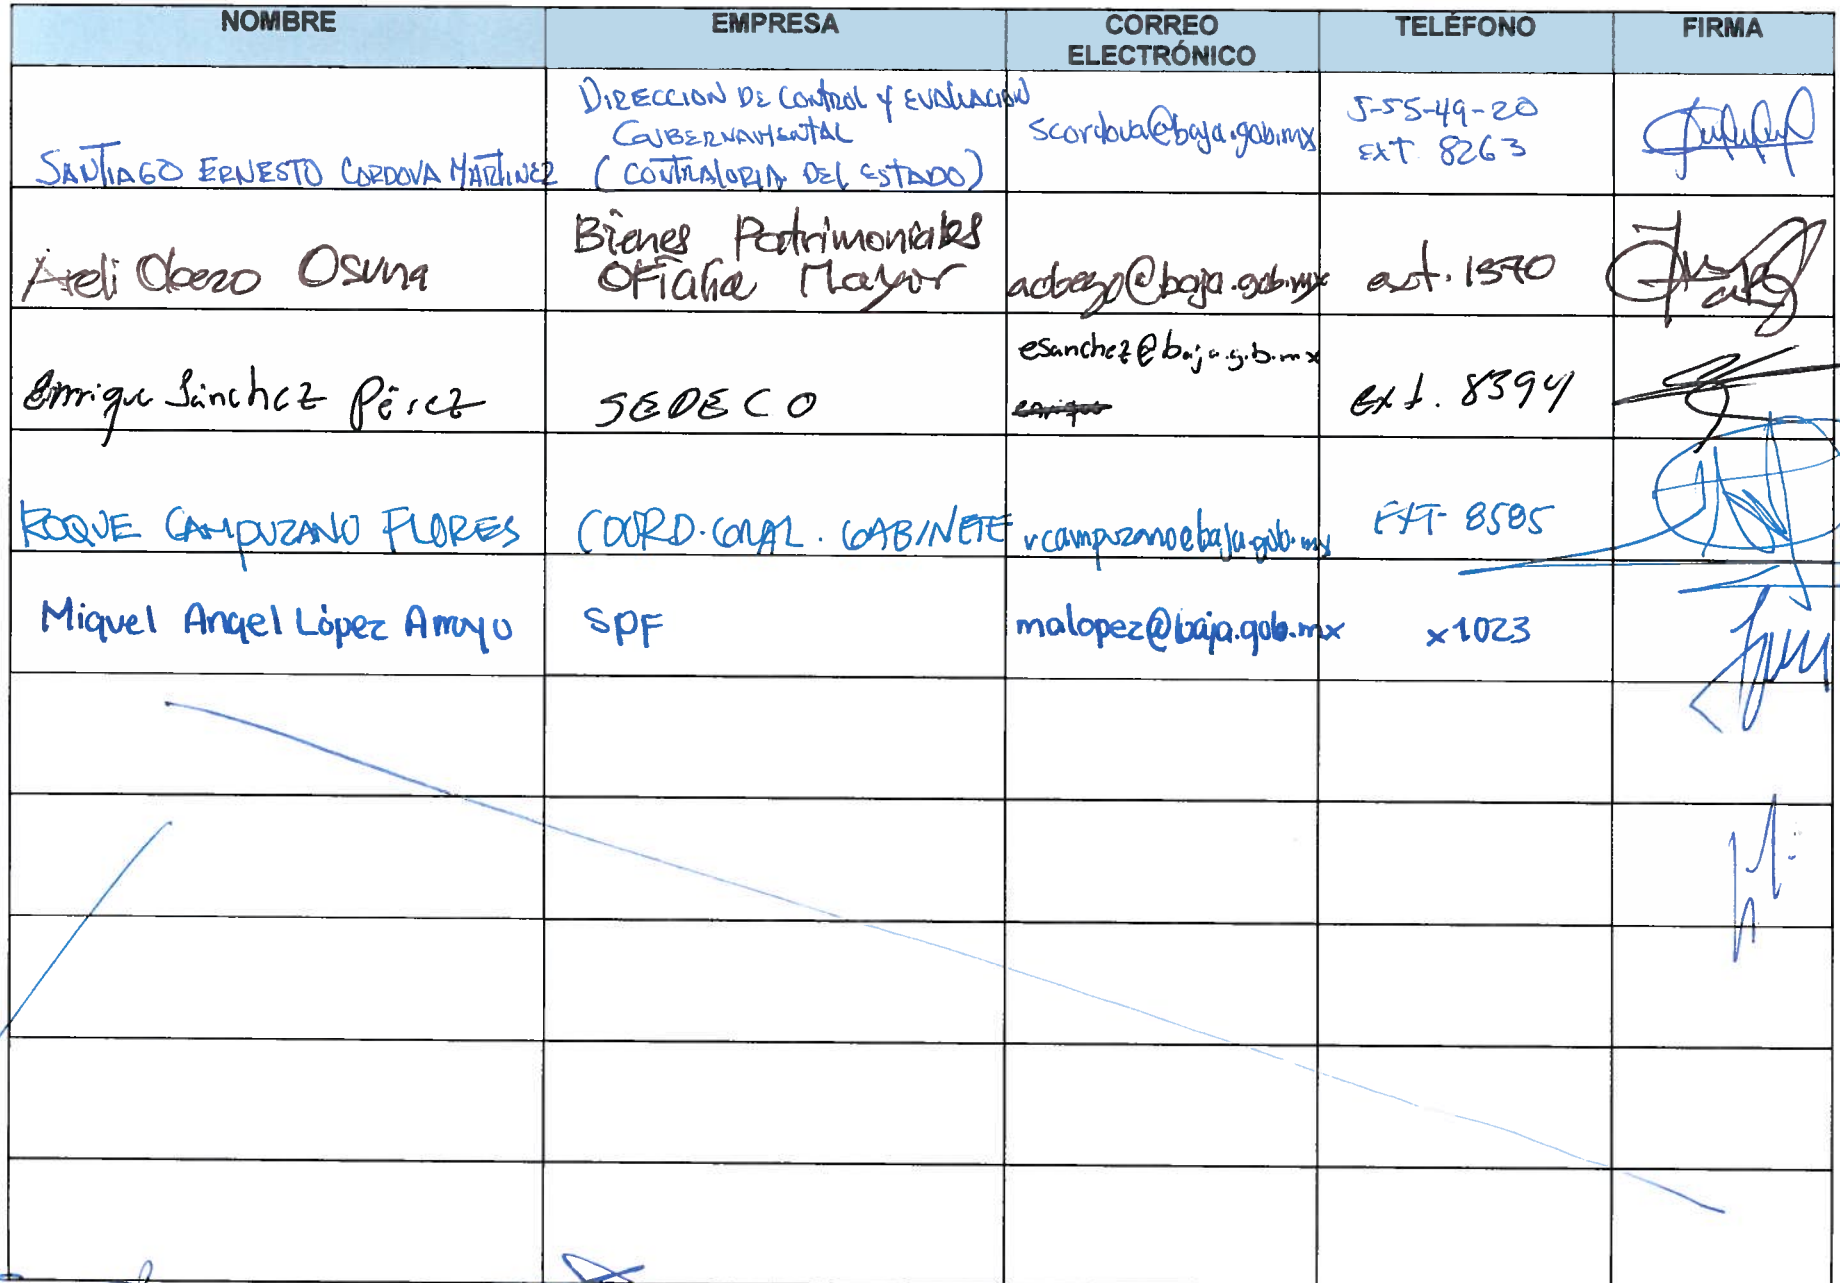 NOMBRE EMPRESA CORREO ELECTRÓNICO TELÉFONO FIRMA
SANTIAGO ERNESTO CORDOVA MARTINEZ
DIRECCION DE CONTROL Y EVALUACION
GUBERNAMENTAL
(CONTRALORIA DEL ESTADO)
scordova@baja.gob.mx
5-55-49-20
EXT 8263
Areli Obezo Osuna
Bienes Patrimoniales
Oficialia Mayor
aobezo@baja.gob.mx
ext. 1570
Enrique Sánchez Pérez
SEDECO
esanchez@baja.gob.mx
enrique
ext. 8394
ROQUE CAMPUZANO FLORES
COORD. GRAL. GABINETE
rcampuzano@baja.gob.mx
EXT 8585
Miguel Angel López Arroyo
SPF
malopez@baja.gob.mx
x1023